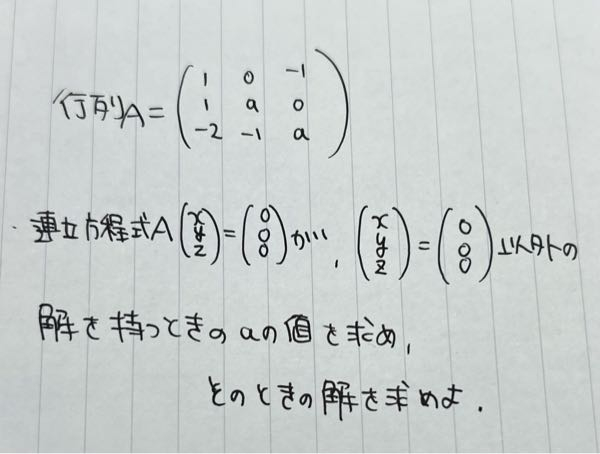 行列A = ( 1 0 -1
1 a 0
-2 -1 a )
・連立方程式A (x y z) = (0 0 0) が、 (x y z) = (0 0 0) 以外の
解を持つときのaの値を求め,
そのときの解を求めよ.